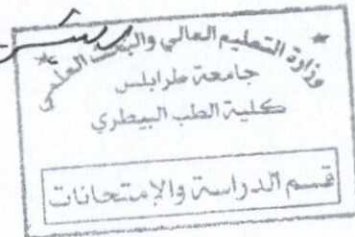 وزارة التعليم العالي والبحث العلمي
جامعة طرابلس
كلية الطب البيطري
قسم الدراسة والإمتحانات